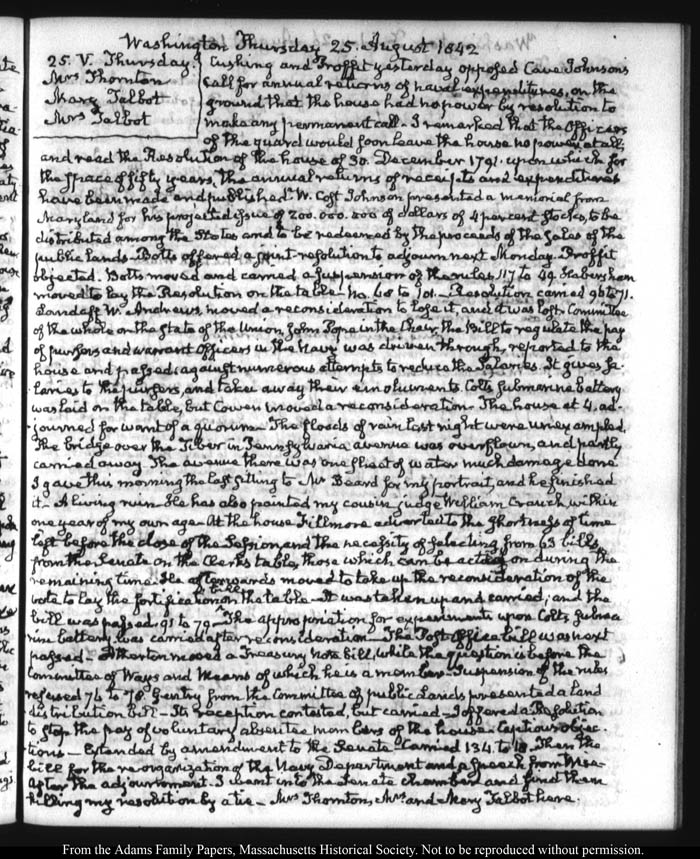 Washington Thursday 25. August 1842
25. V. Thursday.
Mrs Thornton
Mary Talbot
Mrs Talbot
Cushing and Proffit yesterday opposed Cave Johnson's
call for annual returns of naval expenditures, on the
ground that the house had no power by resolution to
make any permanent call. I remarked that the Officers
of the guard would soon leave the house no power at all;
and read the Resolution of the house of 30. December 1791. upon which for
the space of fifty years, the annual returns of receipts and expenditures
have been made and published. W. Cost Johnson presented a memorial from
Maryland for his projected issue of 200.000.000 of dollars of 4 per cent Stocks, to be
distributed among the States and to be redeemed by the proceeds of the Sales of the
public Lands. Botts offered a joint resolution to adjourn next Monday. Proffit
objected. Botts moved and carried a suspension of the rules 117 to 49. Habersham
moved to lay the Resolution on the table. No. 68 to 101. Resolution carried 96 to 71.
Landaff W. Andrews moved a reconsideration to lose it, and it was lost. Committee
of the whole on the State of the Union, John Pope in the Chair, the Bill to regulate the pay
of pursers and warrant Officers in the Navy was driven through, reported to the
house and passed; against numerous attempts to reduce the Salaries. It gives Sa-
laries to the pursers, and takes away their emoluments. Colts submarine battery
was laid on the table, but Cowen moved a reconsideration. The house at 4. ad-
journed for want of a quorum. The floods of rain last night were unexampled.
The bridge over the Tiber in Pennsylvania avenue was overflown, and partly
carried away. The avenue there was one sheet of water much damage done
I gave this morning the last sitting to Mr Beard for my portrait, and he finished
it. A living ruin. He has also painted my cousin judge William Cranch within
one year of my own age. At the house Fillmore adverted to the shortness of time
left before the close of the Session and the necessity of selecting from 63 bills,
from the Senate on the Clerks table, those which can be acted on during the
remaining time. He afterwards moved to take up the reconsideration of the
vote to lay the fortification bill on the table. It was taken up and carried; and the
bill was passed. 91 to 79. The appropriation for experiments upon Colts Subma-
rine battery, was carried after reconsideration. The Post Office bill was next
passed. Atherton moved a Treasury Note bill, while the question is before the
Committee of Ways and Means of which he is a member. Suspension of the rules
refused 76 to 78. Gentry from the Committee of public Lands presented a land
distribution bill. Its reception contested, but carried. I offered a Resolution
to stop the pay of voluntary absentee members of the house. Captious objec-
tions. Extended by amendment to the Senate. Carried 134. to 18. Then the
bill for the re-organization of the Navy Department and a Speech from
After the adjournment. I went into the Senate chamber and find them
killing my resolution by a tie. Mrs Thornton, Mrs. and Mary Talbot here.
From the Adams Family Papers, Massachusetts Historical Society. Not to be reproduced without permission.